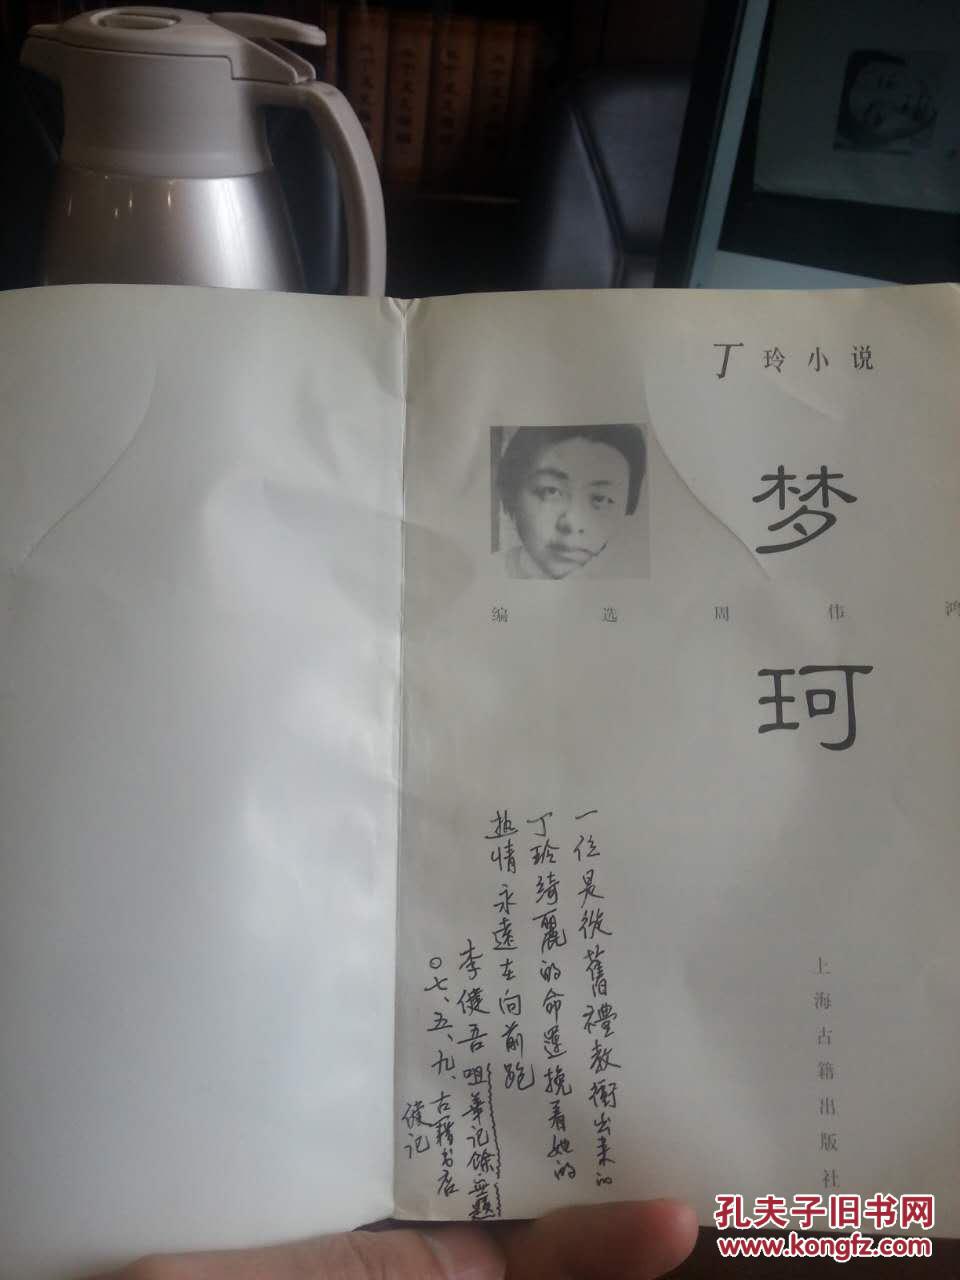 丁玲小说
梦珂
编选周伟鸿
上海古籍出版社
一位是從舊禮教衝出来的
丁玲綺麗的命運挽着她的
热情永遠在向前跑
李健吾咀華记餘·無題
〇七、五、九、古籍书店
健记
孔夫子旧书网
www.kongfz.com